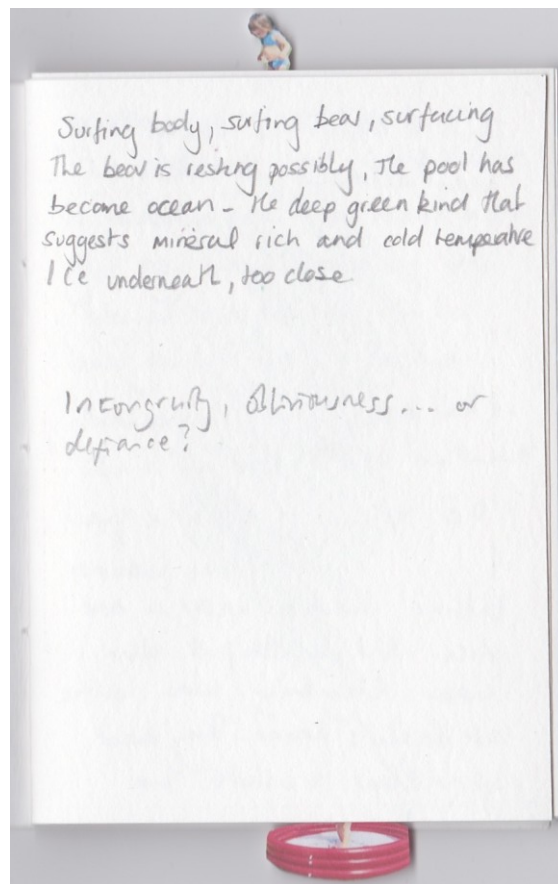 Surfing body, surfing bear, surfacing
The bear is resting possibly, The pool has
become ocean - the deep green kind that
suggests mineral rich and cold temperature
Ice underneath, too close
Incongruity, obliviousness... or
defiance?